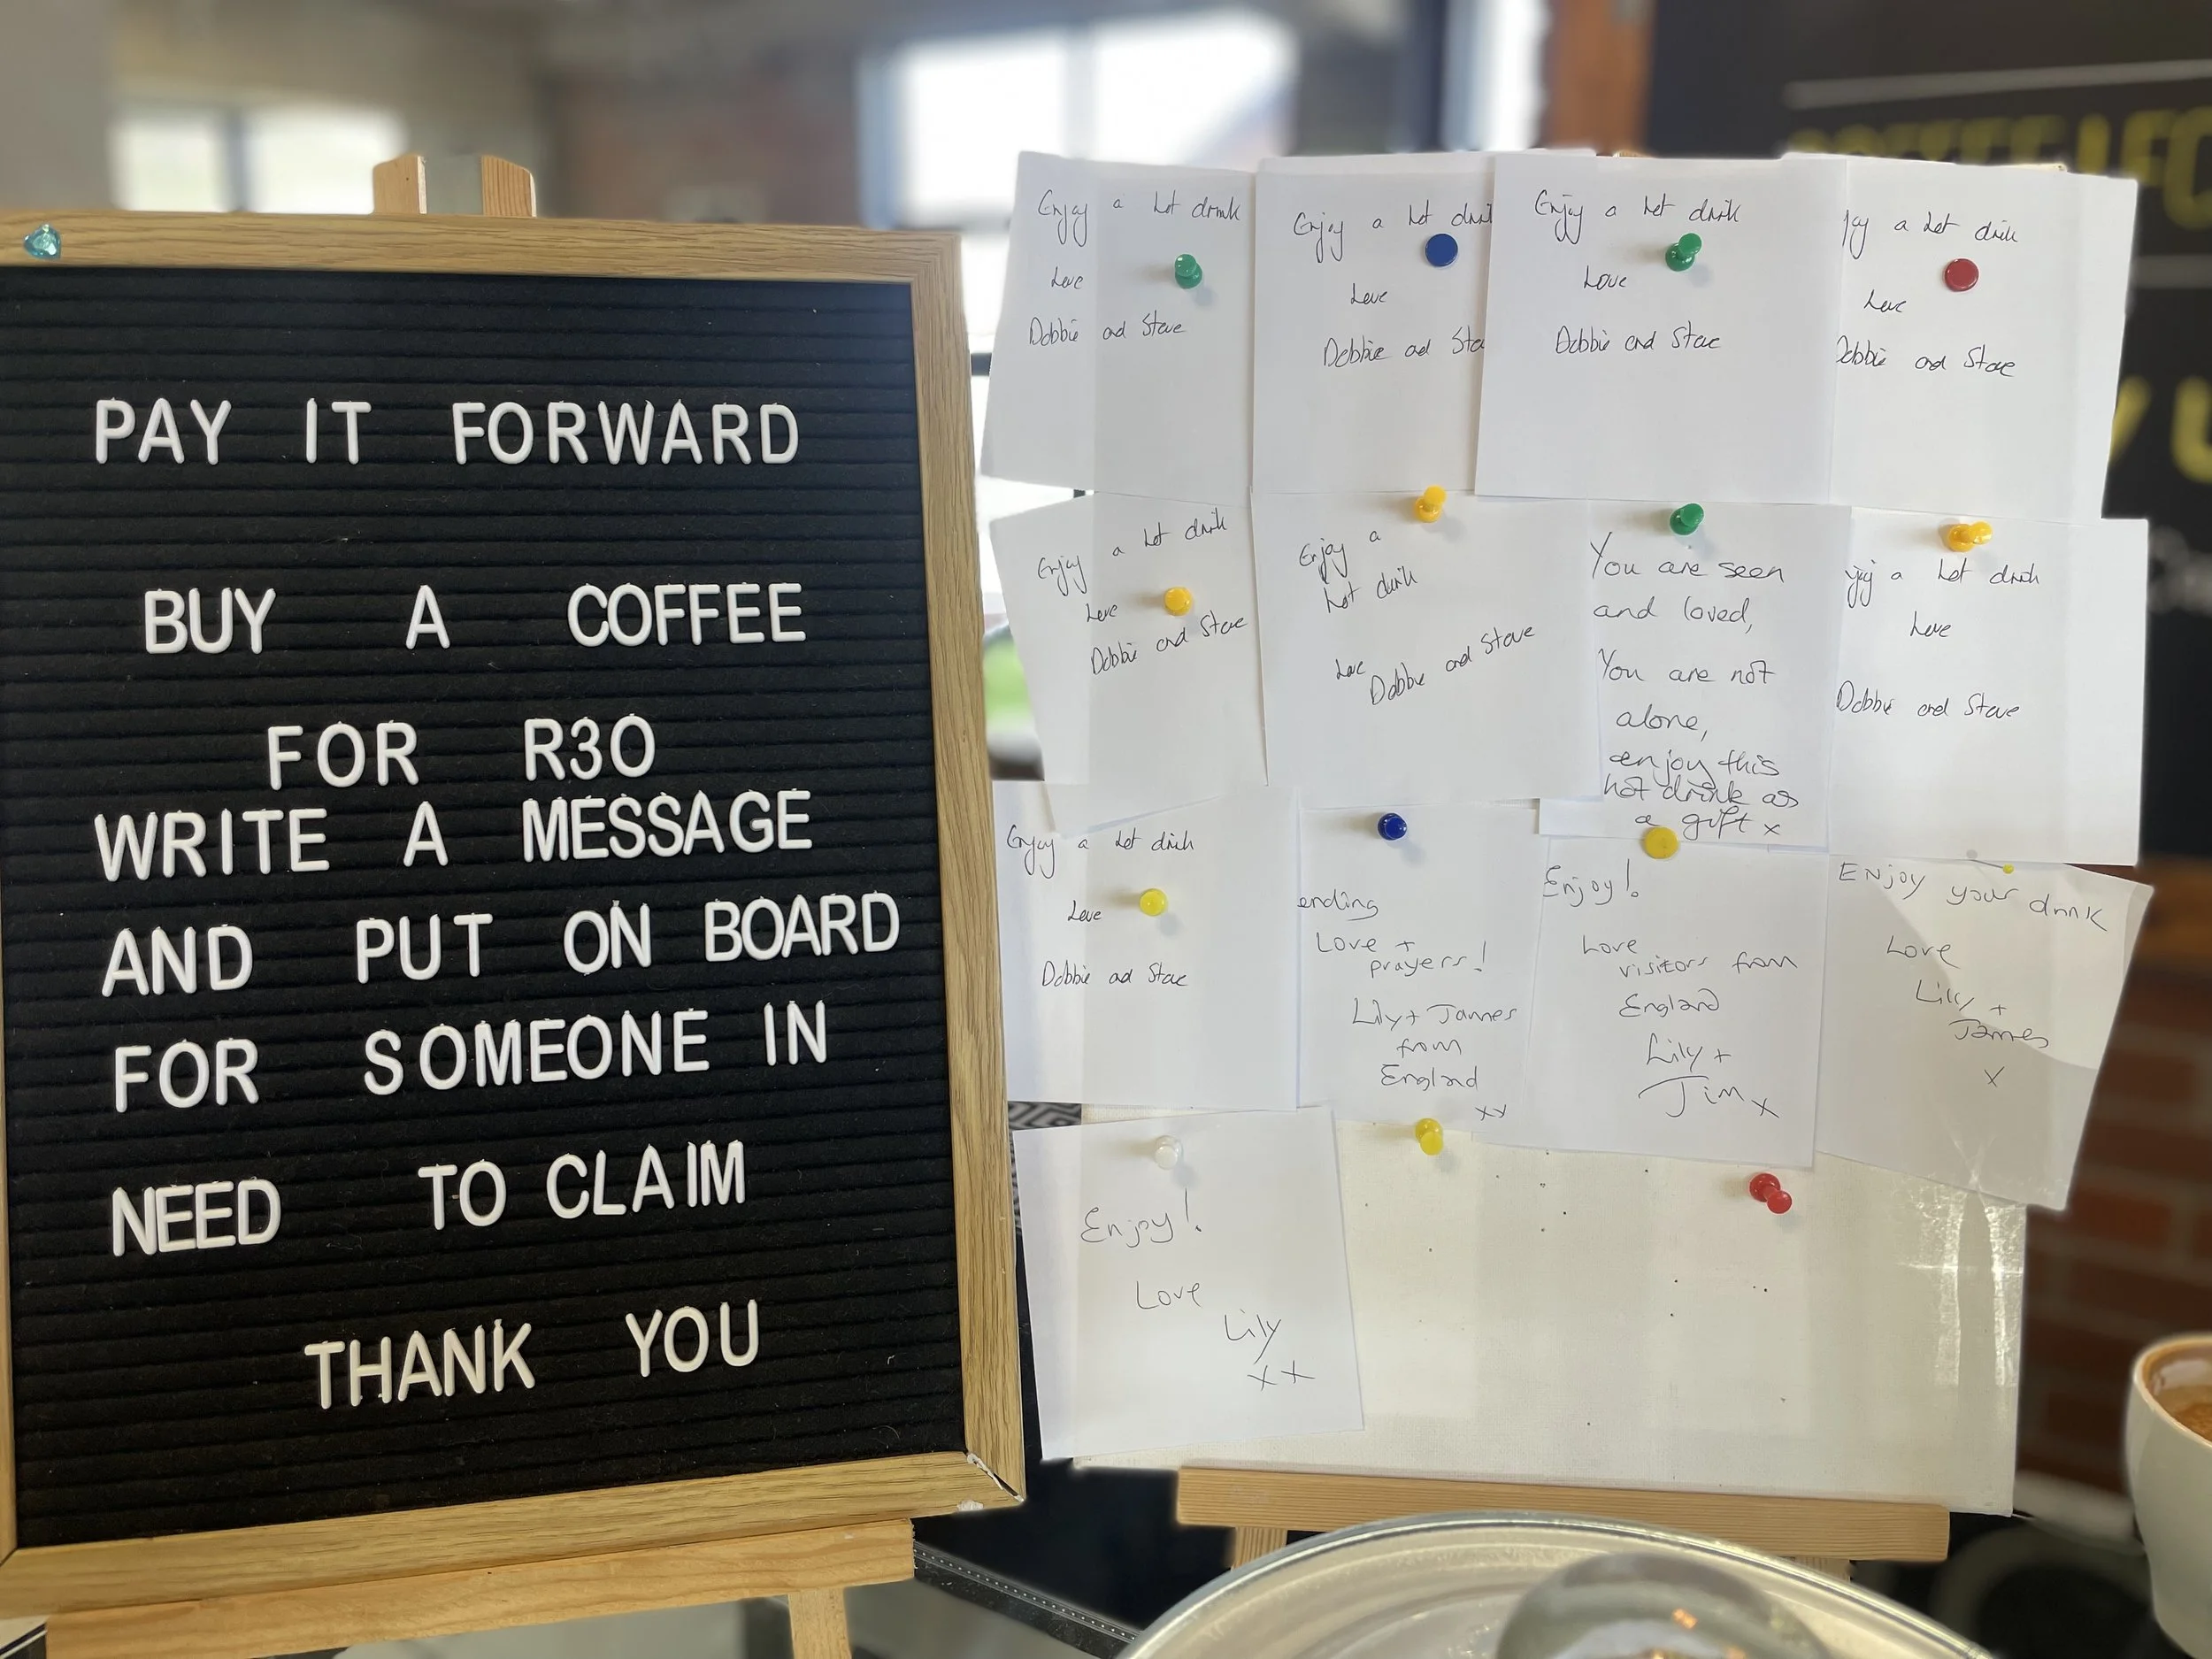 PAY IT FORWARD
BUY A COFFEE
FOR R30
WRITE A MESSAGE
AND PUT ON BOARD
FOR SOMEONE IN
NEED TO CLAIM
THANK YOU
Enjoy a hot drink
Love
Debbie and Steve
Enjoy a hot drin
Love
Debbie and Ste
Enjoy a hot drink
Love
Debbie and Steve
joy a hot drink
Love
Debbie and Steve
Enjoy a hot drink
Love
Debbie and Steve
Enjoy a
hot drink
Love
Debbie and Steve
You are seen
and loved,
You are not
alone,
enjoy this
hot drink as
a gift x
njoy a hot drink
Love
Debbie and Steve
Enjoy a hot drink
Love
Debbie and Steve
ending
Love +
prayers!
Lily + James
from
England
xx
Enjoy!
Love
visitors from
England
Lily +
Jim x
ENjoy your drink
Love
Lily +
James
x
Enjoy!
Love
Lily
xx